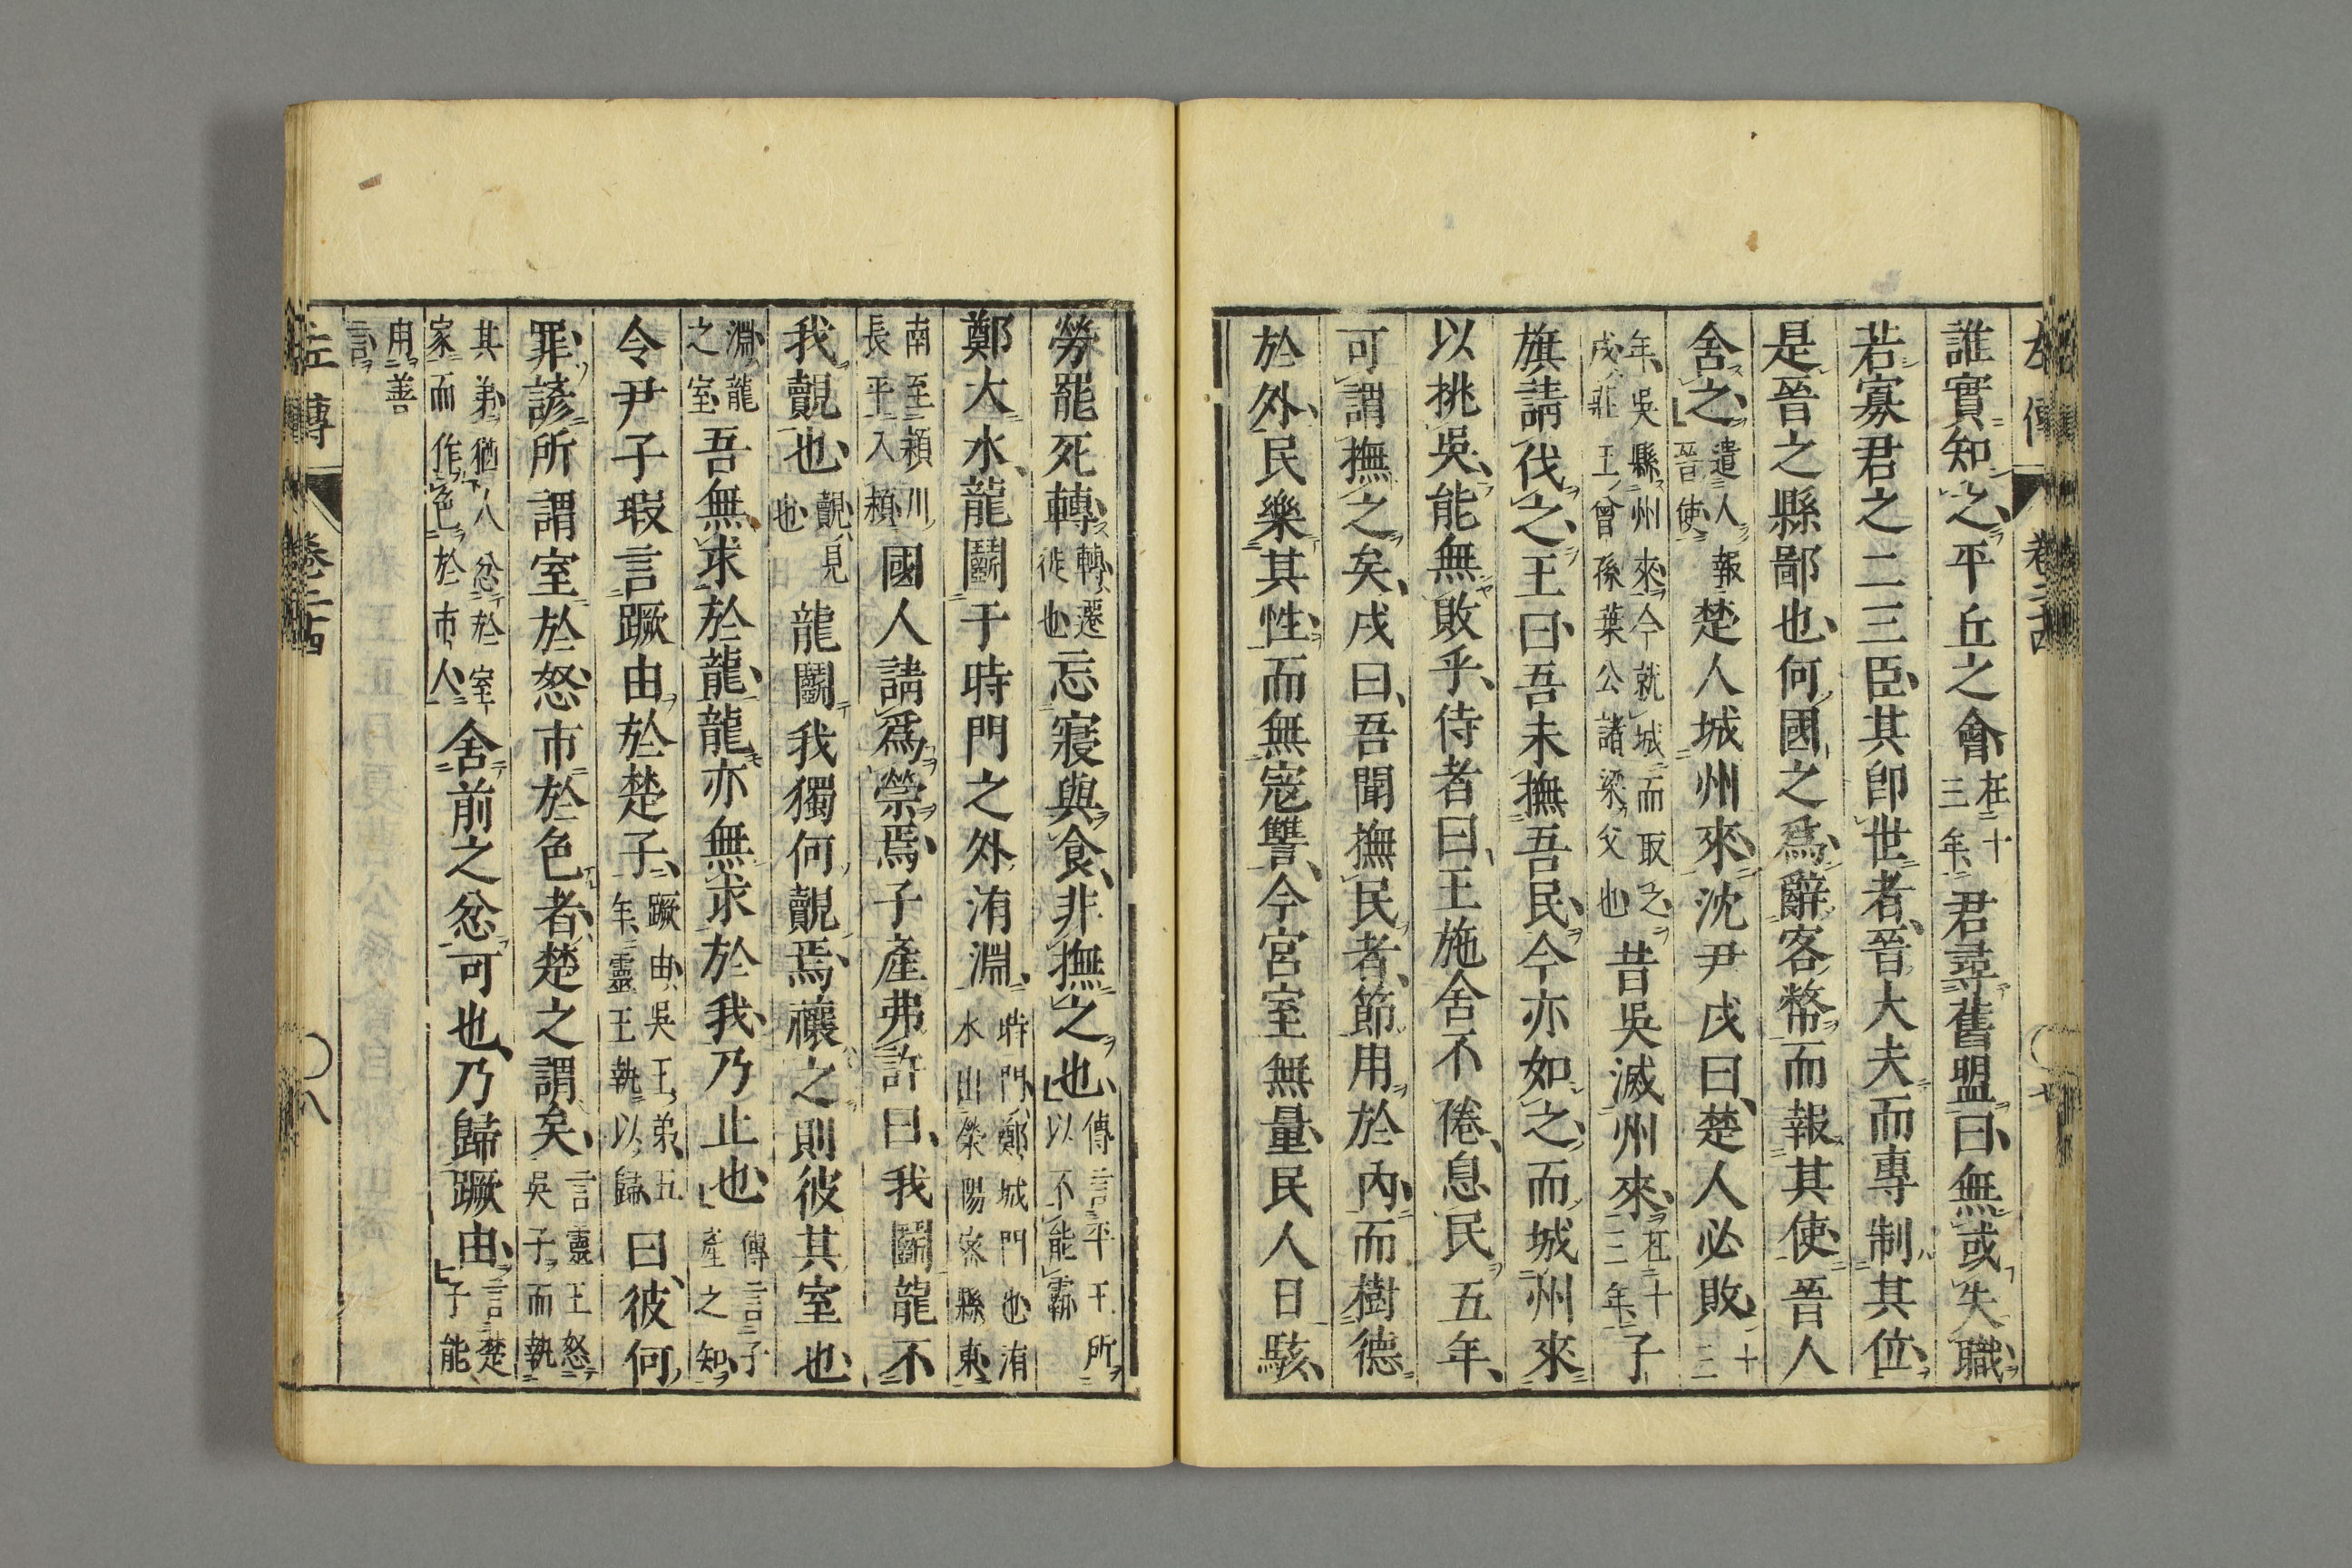 左傳 卷二十四 七
誰實知之平丘之會在十三年君尋舊盟曰無或失職
若寡君之二三臣其即世者晉大夫而專制其位
是晉之縣鄙也何國之爲辭客幣而報其使晉人
舍之遣人報晉使楚人城州來沈尹戌曰楚人必敗十三
年吳縣州來今就城而取之戌莊王曾孫葉公諸梁父也昔吳滅州來在十三年子
旗請伐之王曰吾未撫吾民今亦如之而城州來
以挑吳能無敗乎侍者曰王施舍不倦息民五年
可謂撫之矣戌曰吾聞撫民者節用於內而樹德
於外民樂其性而無寇讐今宮室無量民人日駭
勞罷死轉轉遷徙也忘寢與食非撫之也傳言平王所以不能霸
鄭大水龍鬭于時門之外洧淵時門鄭城門也洧水出滎陽密縣東
南至潁川長平入潁國人請爲禜焉子產弗許曰我鬭龍不
我覿也覿見也龍鬭我獨何覿焉禳之則彼其室也
淵龍之室吾無求於龍龍亦無求於我乃止也傳言子產之知
令尹子瑕言蹶由於楚子蹶由吳王弟五年靈王執以歸曰彼何
罪諺所謂室於怒市於色者楚之謂矣言靈王怒吳子而執
其弟猶人忿於室家而作色於市人舍前之忿可也乃歸蹶由言楚子能
用善言
左傳 卷二十四 八